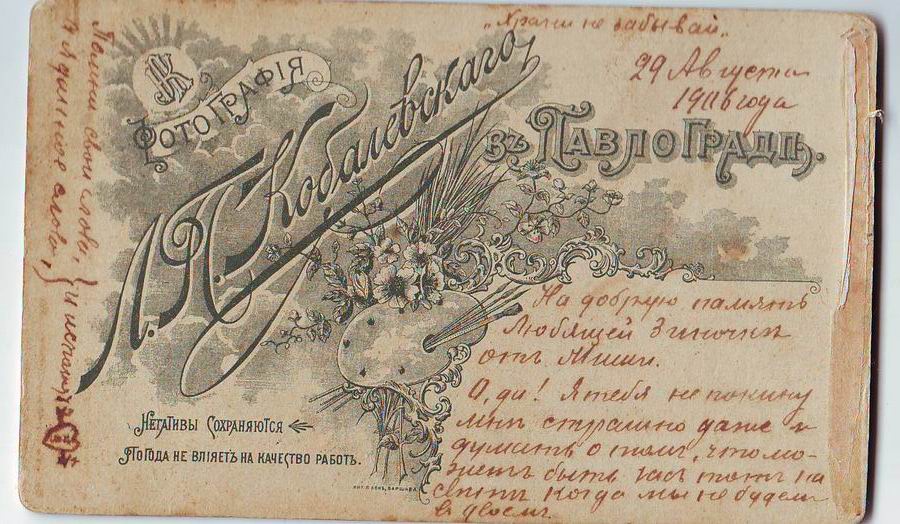 „Храни не забывай„
29 Августа
1906 года
ФОТОГРАФІЯ
Л.П. Ковалевскаго
ВЪ ПАВЛОГРАДѢ.
Помни свои слова,
а я данное слово,
} и исполню
На добрую память
Любящей Зиночки
отъ Миши.
О, да! Я тебя не покину
мнѣ страшно даже и
думать о томъ, что мо-
жетъ быть часъ тотъ на
свѣтѣ когда мы не будемъ
въ двоемъ
НЕГАТИВЫ СОХРАНЯЮТСЯ
ПОГОДА НЕ ВЛІЯЕТЪ НА КАЧЕСТВО РАБОТЪ.